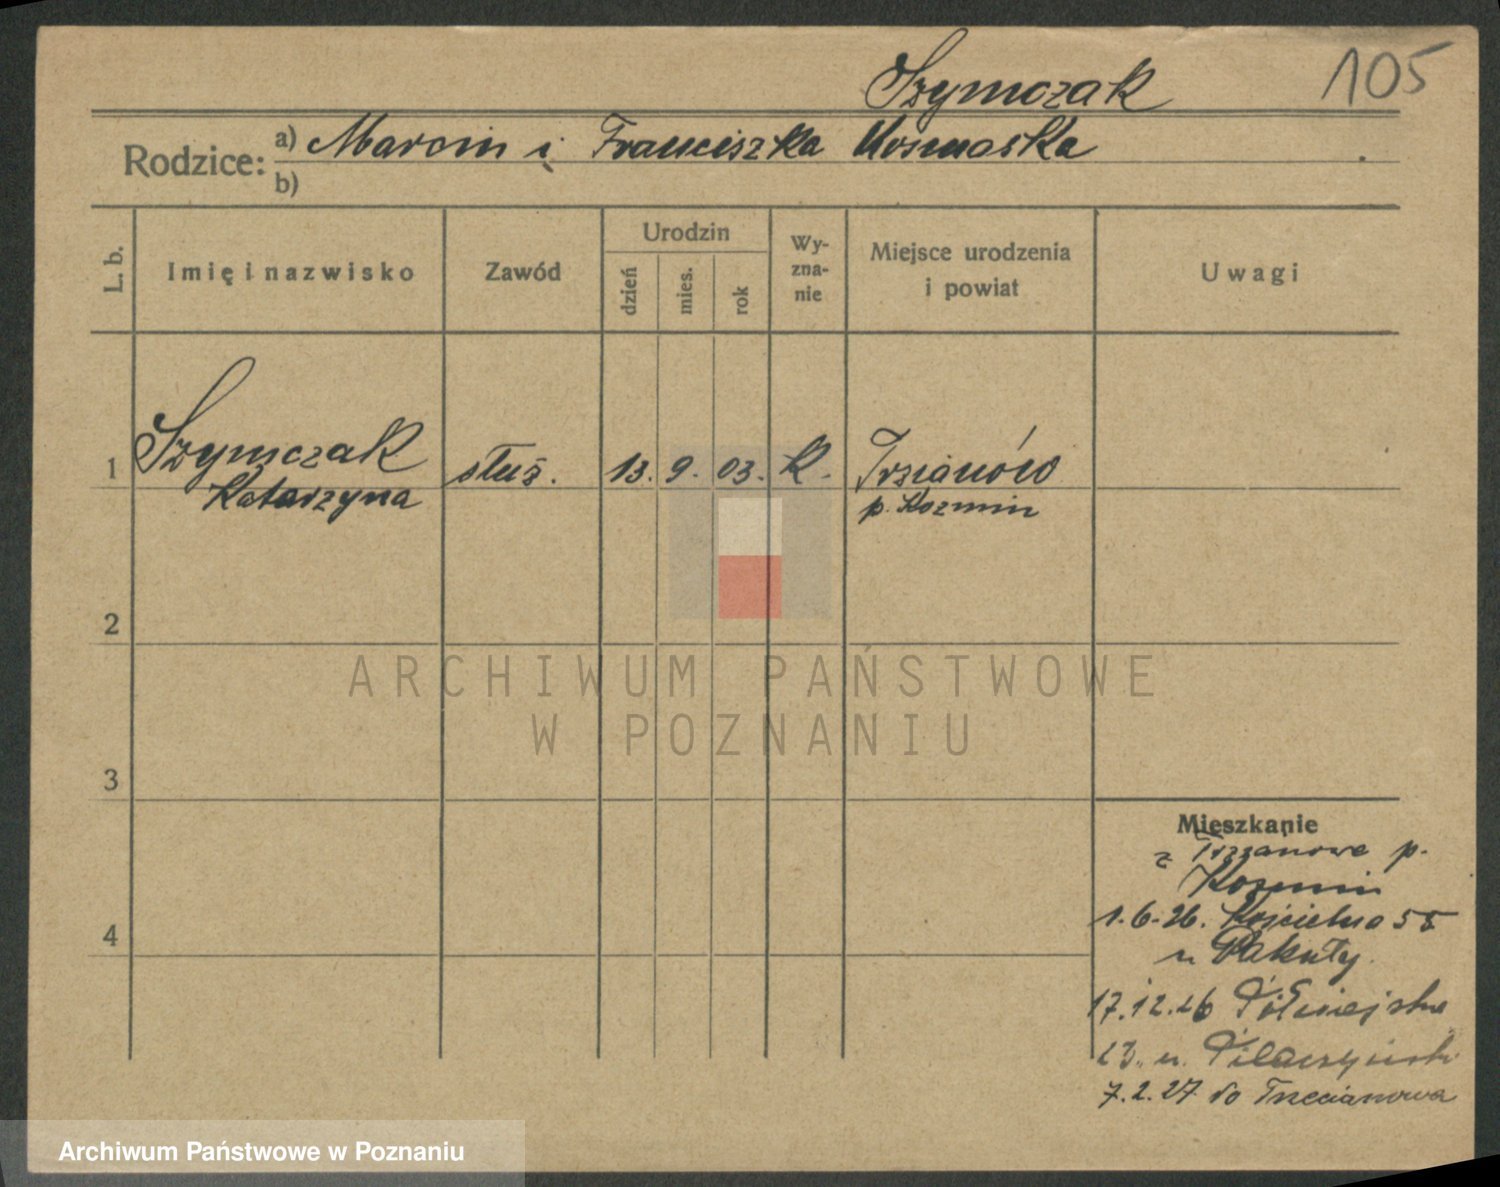 Szymczak 105
Rodzice: a) Marcin i Franciszka
b)
L. b. Imię i nazwisko Zawód Urodzin dzień mies. rok Wyznanie Miejsce urodzenia i powiat Uwagi
1 Szymczak służ. 13. 9. 03. k.
Katarzyna p. Kozmin
2
3
4
Mieszkanie
z p.
Kozmin
1.6.26. Kościelna
u
17.12.26
23. u.
7.2.27 do
ARCHIWUM PAŃSTWOWE
W POZNANIU
Archiwum Państwowe w Poznaniu